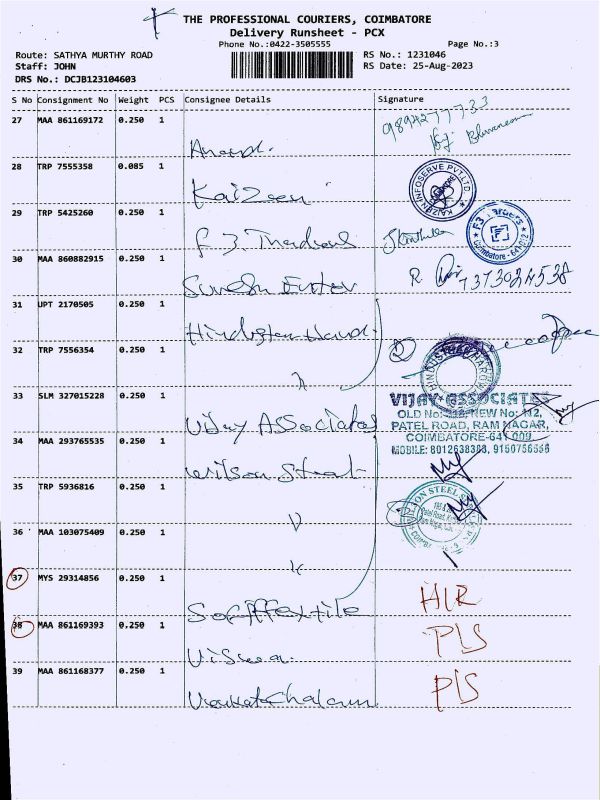 THE PROFESSIONAL COURIERS, COIMBATORE
Delivery Runsheet - PCX
Phone No.:0422-3505555
Page No.:3
Route: SATHYA MURTHY ROAD
RS No.: 1231046
Staff: JOHN
RS Date: 25-Aug-2023
DRS No.: DCJB123104603
S No Consignment No Weight PCS Consignee Details Signature
27 MAA 861169172 0.250 1
9894277733
Anand.
28 TRP 7555358 0.085 1
KAIZEN INFOSERVE PVT LTD
Kaizen
29 TRP 5425260 0.250 1
F3 Traders
Coimbatore - 641 012
F 3 Traders
30 MAA 860882915 0.250 1
R
7373024538
Suresh
31 UPT 2170505 0.250 1
Hindustan Hard
32 TRP 7556354 0.250 1
HINDUSTHAN HARDW
33 SLM 327015228 0.250 1
VIJAY ASSOCIATES
OLD No: NEW No: 112,
PATEL ROAD, RAM NAGAR,
COIMBATORE-641 009
MOBILE: 8012638383, 9150756556
Vijay Associates
34 MAA 293765535 0.250 1
Wilson Steel
35 TRP 5936816 0.250 1
ON STEEL
Patel Road,
Ram Nagar,
36 MAA 103075409 0.250 1
37 MYS 29314856 0.250 1
HLR
38 MAA 861169393 0.250 1
PLS
Viswa.
39 MAA 861168377 0.250 1
PLS
Venkatachalam